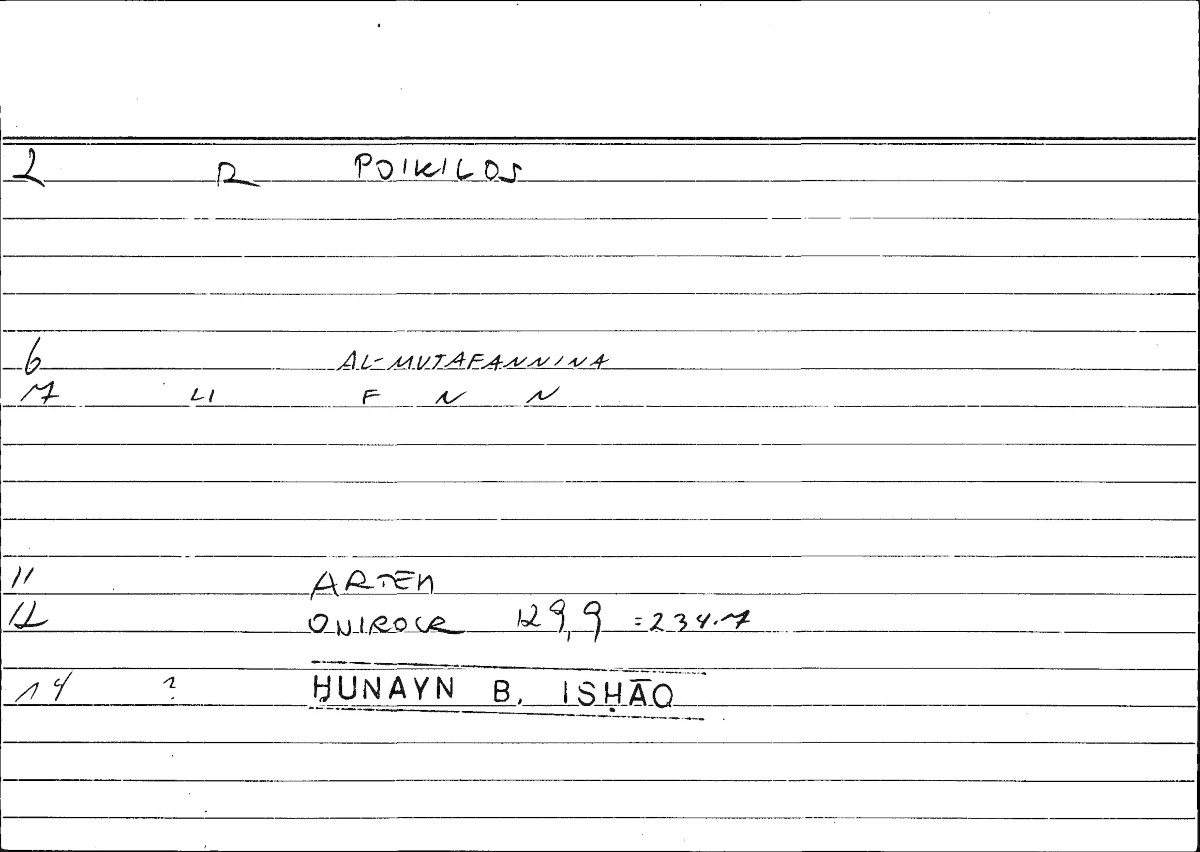 2 R POIKILOS
6 AL-MUTAFANNINA
7 LI F N N
11 ARTEM
12 ONIROCR 129,9 = 234.7
14 ? ḤUNAYN B. ISḤĀQ